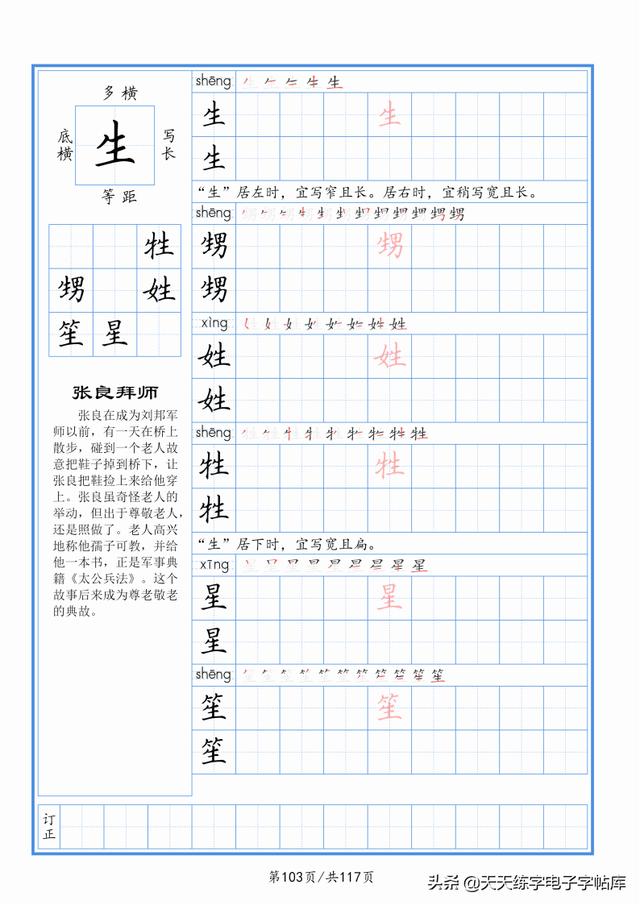 多横
底横
生
写长
等距
牲
甥 姓
笙 星
张良拜师
张良在成为刘邦军
师以前，有一天在桥上
散步，碰到一个老人故
意把鞋子掉到桥下，让
张良把鞋捡上来给他穿
上。张良虽奇怪老人的
举动，但出于尊敬老人，
还是照做了。老人高兴
地称他孺子可教，并给
他一本书，正是军事典
籍《太公兵法》。这个
故事后来成为尊老敬老
的典故。
shēng
生 生
生
“生”居左时，宜写窄且长。居右时，宜稍写宽且长。
shēng
甥 甥
甥
xìng
姓 姓
姓
shēng
牲 牲
牲
“生”居下时，宜写宽且扁。
xīng
星 星
星
shēng
笙 笙
笙
订正
第103页/共117页
头条 @天天练字电子字帖库